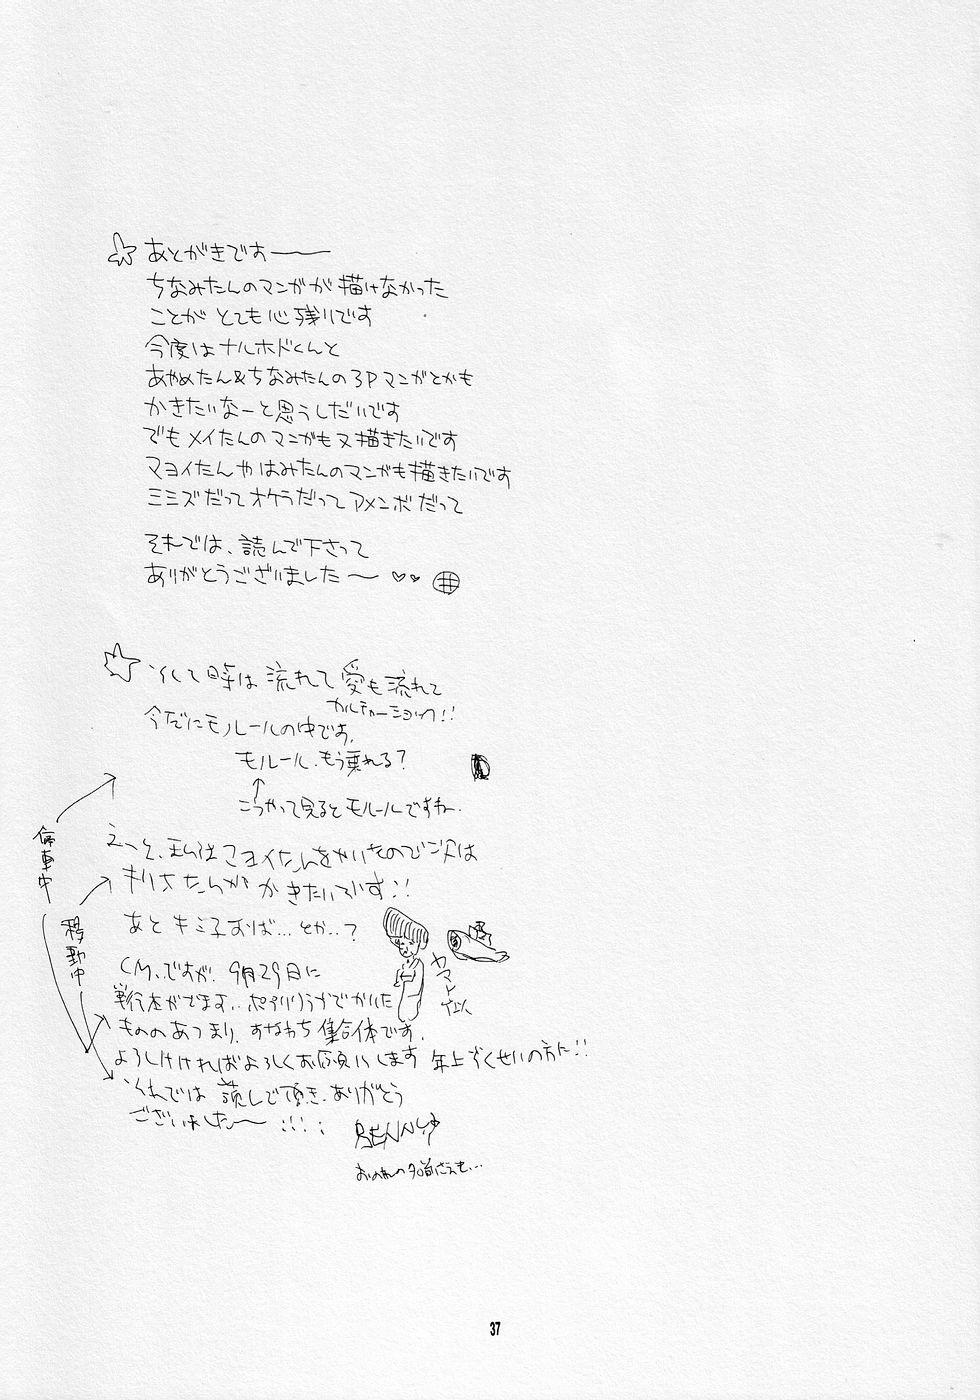 あとがきですー
ちなみたんのマンガが描けなかった
ことがとても心残りです
今度はナルホドくんと
あやめたん&ちなみたんの3Pマンガとかも
かきたいなーと思うしだいです
でもメイたんのマンガも又描きたいです
マヨイたんやはみたんのマンガも描きたいです
ミミズだってオケラだってアメンボだって
それでは、読んで下さって
ありがとうございました〜 ♡♡ 井
そして時は流れて愛も流れて
カルチャーショック!!
今だにモノルールの中です。
モルール、もう乗れる?
↑
こうやって見るとモルールですね。
停車中
えっと、私はマヨイたんをかいたので次は
キリオたんがかきたいです!!
移動中
あとキミ子おば…とか…?
ヤマト
CM、ですが、9月29日に
単行本がでます..
でかいた
もののあつまり、すなわち集合体です。
よろしければよろしくお願いします 年上ずくせいの方に!!
それでは読んで頂き、ありがとう
ございました〜
BENNY
おのれの名前さえも…
37